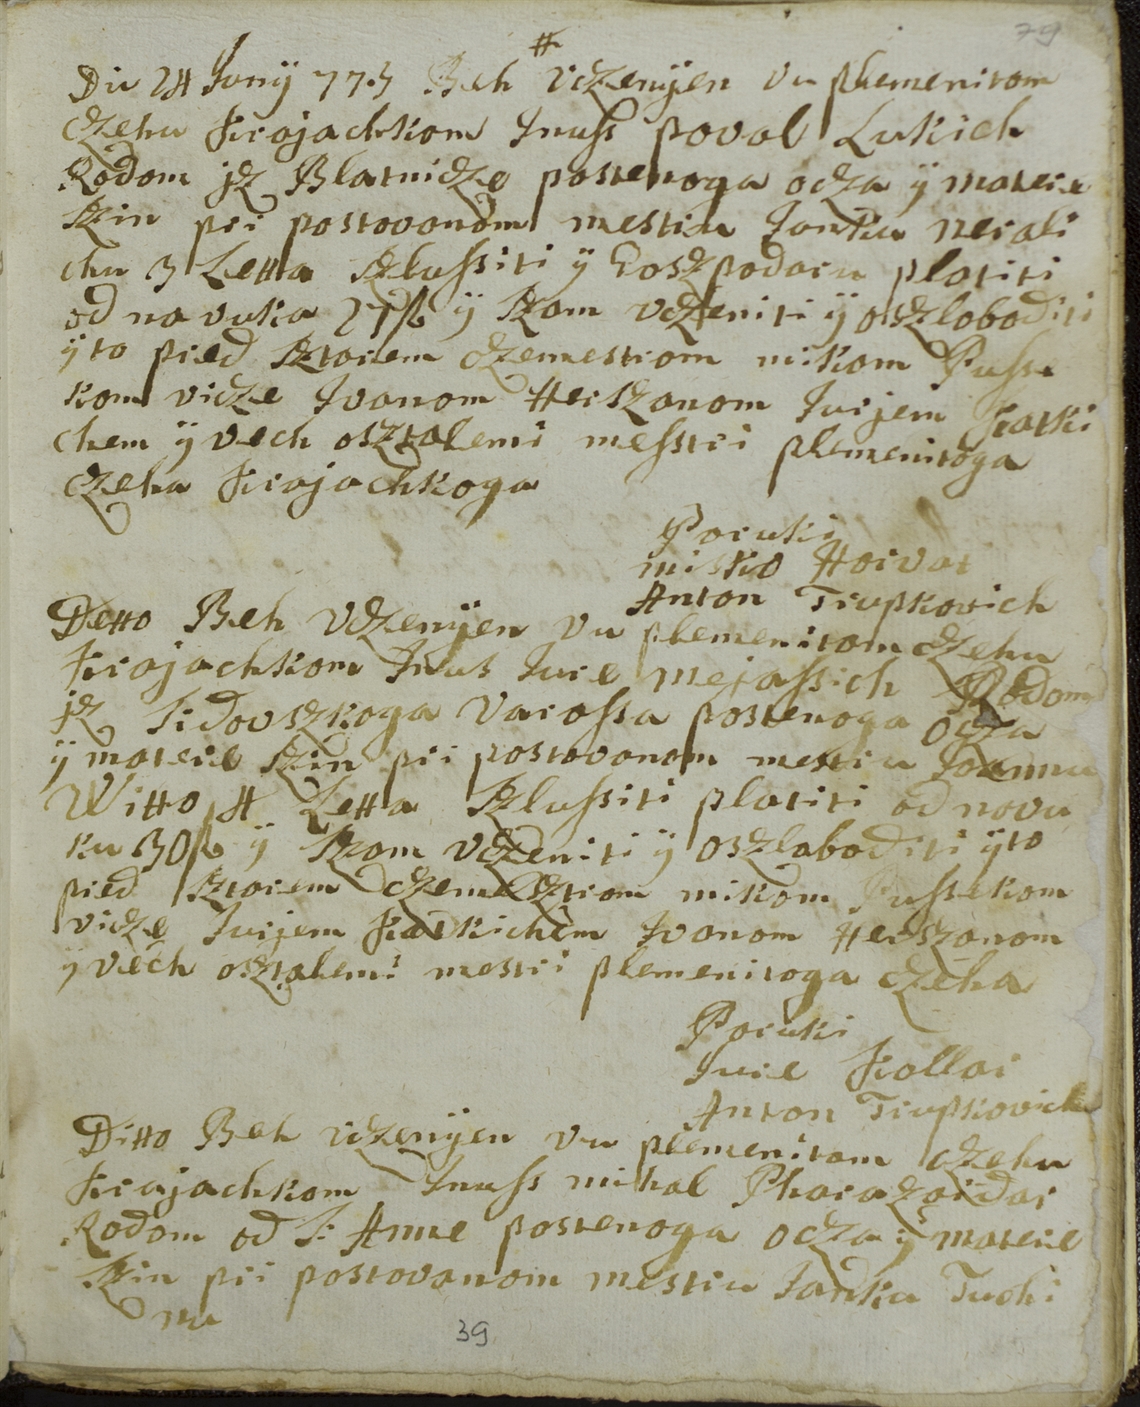 79
Die 24 Juny 773 Beh vczenyen vu plemenitom
czehu krojachkom Inuss povol Lukich
Rodom jz Blatnicze postenoga ocza y matere
szin pri postovonom mestru Janku
chu 3 Letta szlussiti y Goszpodaru platiti
od navuka 27 f y szam vczeniti y oszloboditi
y to pred sztarem czemestrom mikom Pusse
kom vicze Ivonom Herszonom Jurjem Karki
chem y vech osztalemi messtri plemenitoga
czeha krojachkoga
Poruki
misko Horvat
Anton Trupkovich
Detto Beh vczenyen vu plemenitom czehu
krojachkom Inus Jure mejassich Rodom
jz Sidovszkoga Varossa postenoga ocza
y matere szin pri postovonom mestru Joannu
Witto 4 Letta szlussiti platiti od novu
ku 30 f y szom vczeniti y oszloboditi y to
pred sztarem czemesztrom mikom Pussekom
vicze Jurjem Karkichem Ivonom Herszonom
y vech osztalemi mestri plemenitoga czeha
Poruki
Jure Kollar
Anton Trupkovich
Ditto Beh vczenyen vu plemenitom czehu
krojachkom Inuss mihal
Rodom od S: Anne postenoga ocza y matere
szin pri postovonom mestru Janku Tuchi
nu
39